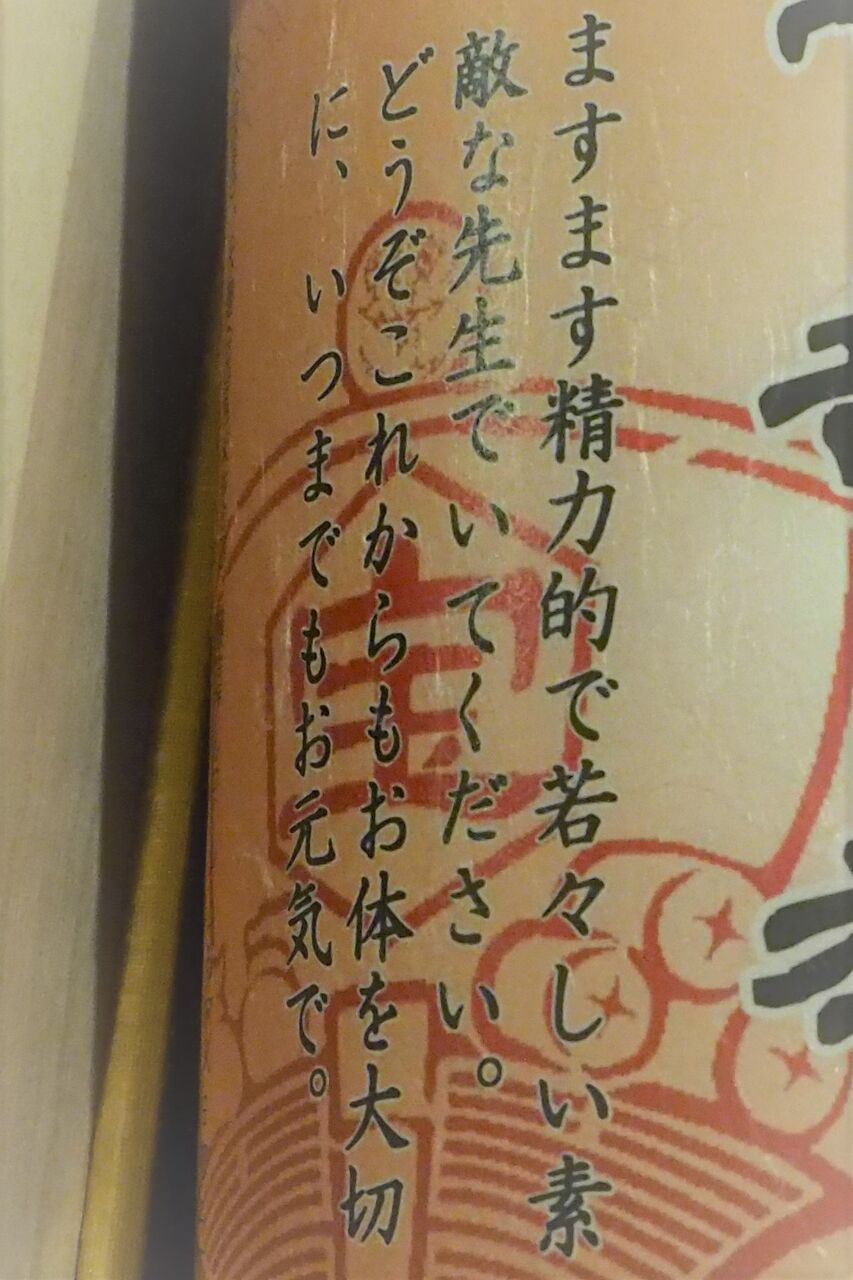 ますます精力的で若々しい素
敵な先生でいてください。
どうぞこれからもお体を大切
に、いつまでもお元気で。
宝